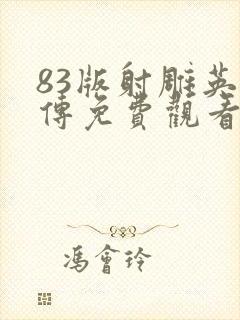 83版射雕英
傳免費觀看
馮會玲